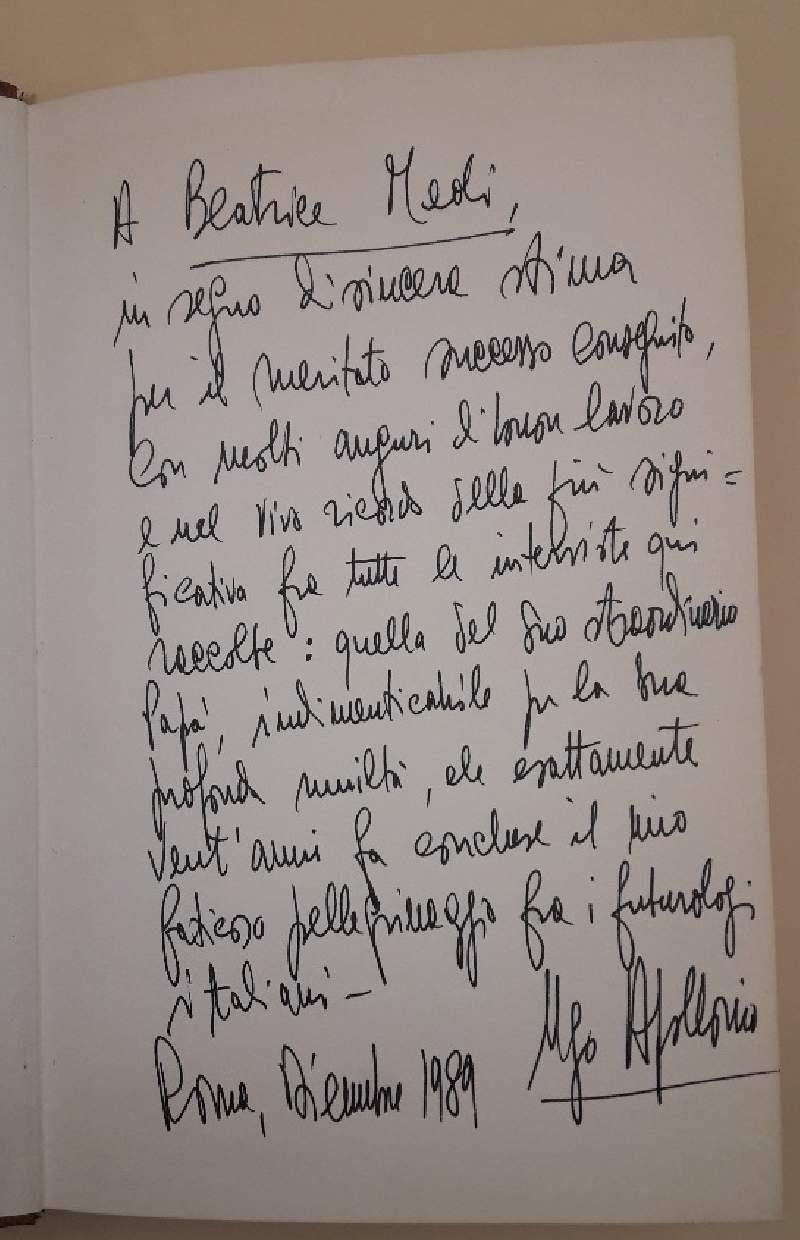 A Beatrice Medi,
in segno di sincera stima
per il meritato successo conseguito,
con molti auguri di buon lavoro
e nel vivo ricordo della più signi=
ficativa fra tutte le interviste qui
raccolte: quella del Suo straordinario
Papà, indimenticabile per la Sua
profonda umiltà, che esattamente
vent'anni fa concluse il mio
faticoso pellegrinaggio fra i futurologi
italiani —
Roma, Dicembre 1989 Ugo Apollonio